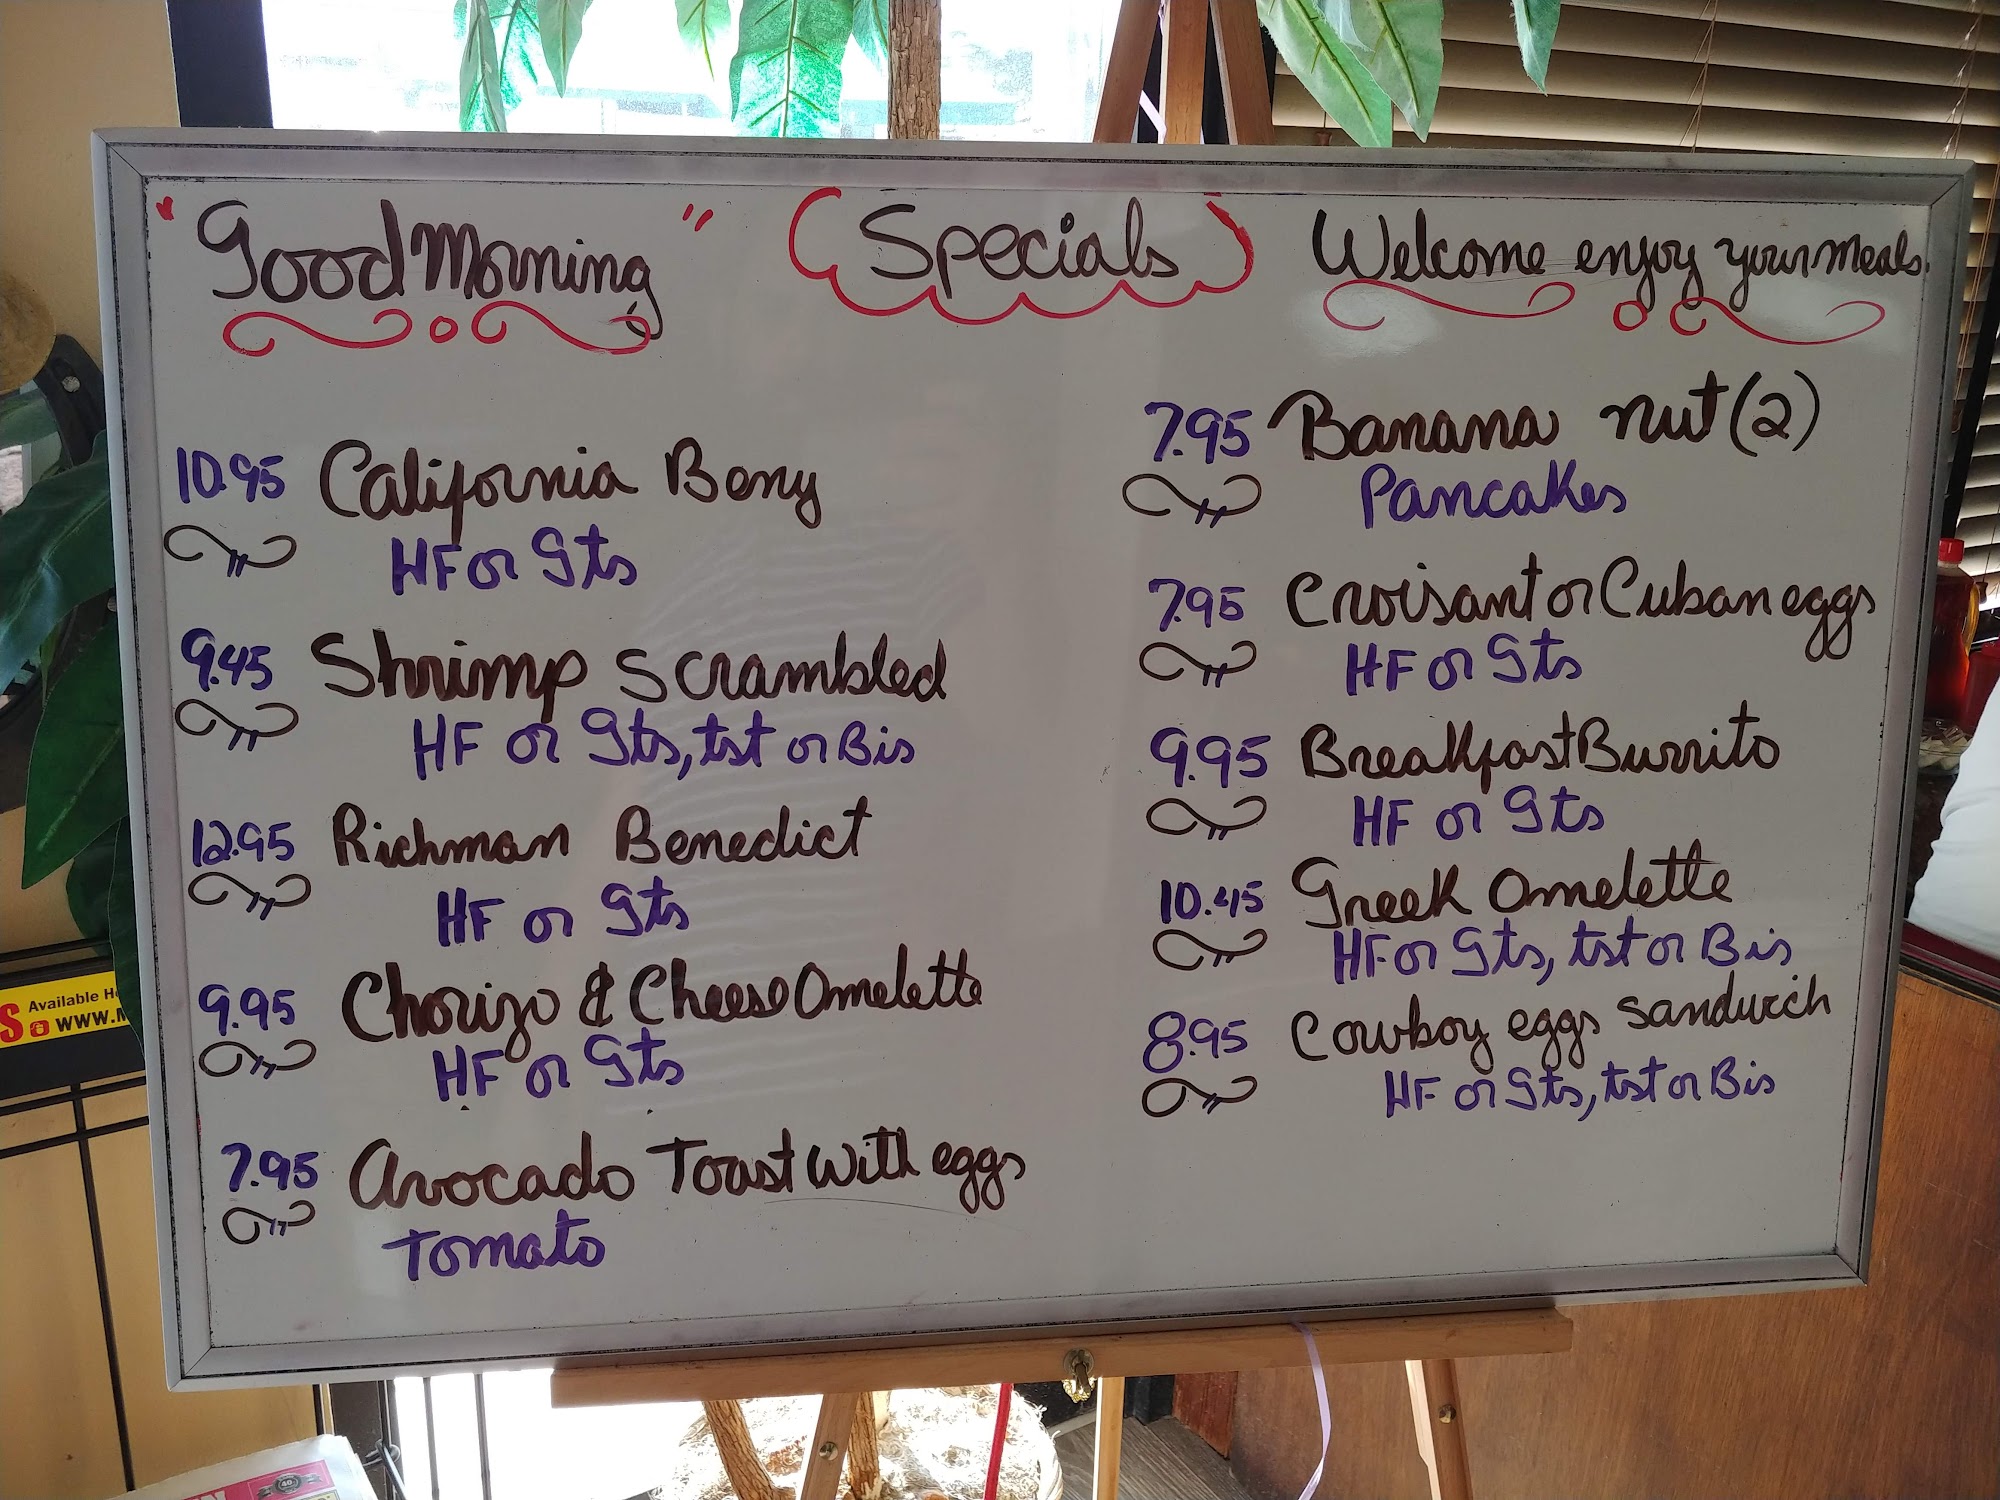 "Good Morning"
Specials
Welcome enjoy your meals.
10.95 California Beny
HF or Gts
9.45 Shrimp Scrambled
HF or Gts, tst or Bis
12.95 Richman Benedict
HF or Gts
9.95 Chorizo & Cheese Omelette
HF or Gts
7.95 Avocado Toast With eggs
Tomato
7.95 Banana nut (2)
Pancakes
7.95 Croisant or Cuban eggs
HF or Gts
9.95 Breakfast Burrito
HF or Gts
10.45 Greek Omelette
HF or Gts, tst or Bis
8.95 Cowboy eggs sandwich
HF or Gts, tst or Bis
S Available H
WWW.M